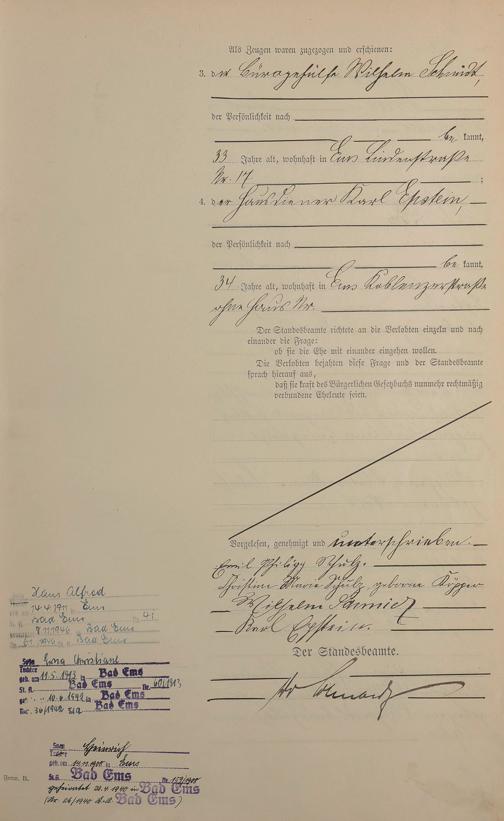 Als Zeugen waren zugezogen und erschienen:
3. der Bürogehülfe Wilhelm Schmidt,
der Persönlichkeit nach
be kannt,
33 Jahre alt, wohnhaft in Ems Lindenstraße
Nr. 17 ;
4. der Hausdiener Karl Epstein,
der Persönlichkeit nach
be kannt,
34 Jahre alt, wohnhaft in Ems Koblenzerstraße
ohne Haus Nr.
Der Standesbeamte richtete an die Verlobten einzeln und nach
einander die Frage:
ob sie die Ehe mit einander eingehen wollen.
Die Verlobten bejahten diese Frage und der Standesbeamte
sprach hierauf aus,
daß sie kraft des Bürgerlichen Gesetzbuchs nunmehr rechtmäßig
verbundene Eheleute seien.
Vorgelesen, genehmigt und unterschrieben.
Emil Philipp Schulz.
Marie Schulz geborene Küpper
Wilhelm Schmidt
Karl Epstein.
Der Standesbeamte.
Hans Alfred
14.4.1911 Ems
Bad Ems 41
Bad Ems
Bad Ems
Erna Christiane
Tochter
geb. am 11.5.1913 in Bad Ems
St. A. Bad Ems Nr. 60/1913
10.6.1942 in Bad Ems
Nr. 36/1942 Bad Ems
Sohn Heinrich
geb. am in Ems
St. A. Bad Ems Nr.
geheiratet 20.4.1940 in Bad Ems
(Nr. 26/1940 Bad Ems)
Form. B.